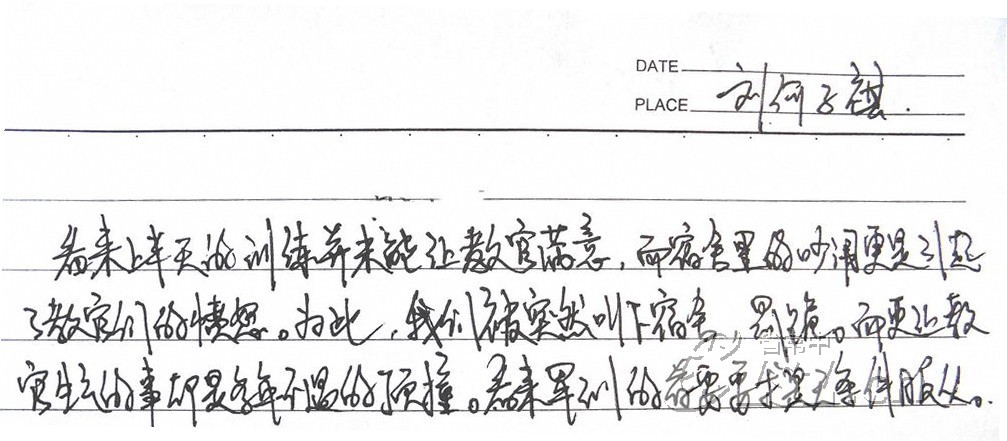 DATE
PLACE 刘何子祺.
看来上半天的训练并未能让教官满意，而宿舍里的吵闹更是引起
了教官们的愤怒。为此，我们被突然叫下宿舍，罚。而更让教
官生气的事却是的顶撞。看来军训的要求是无条件服从。